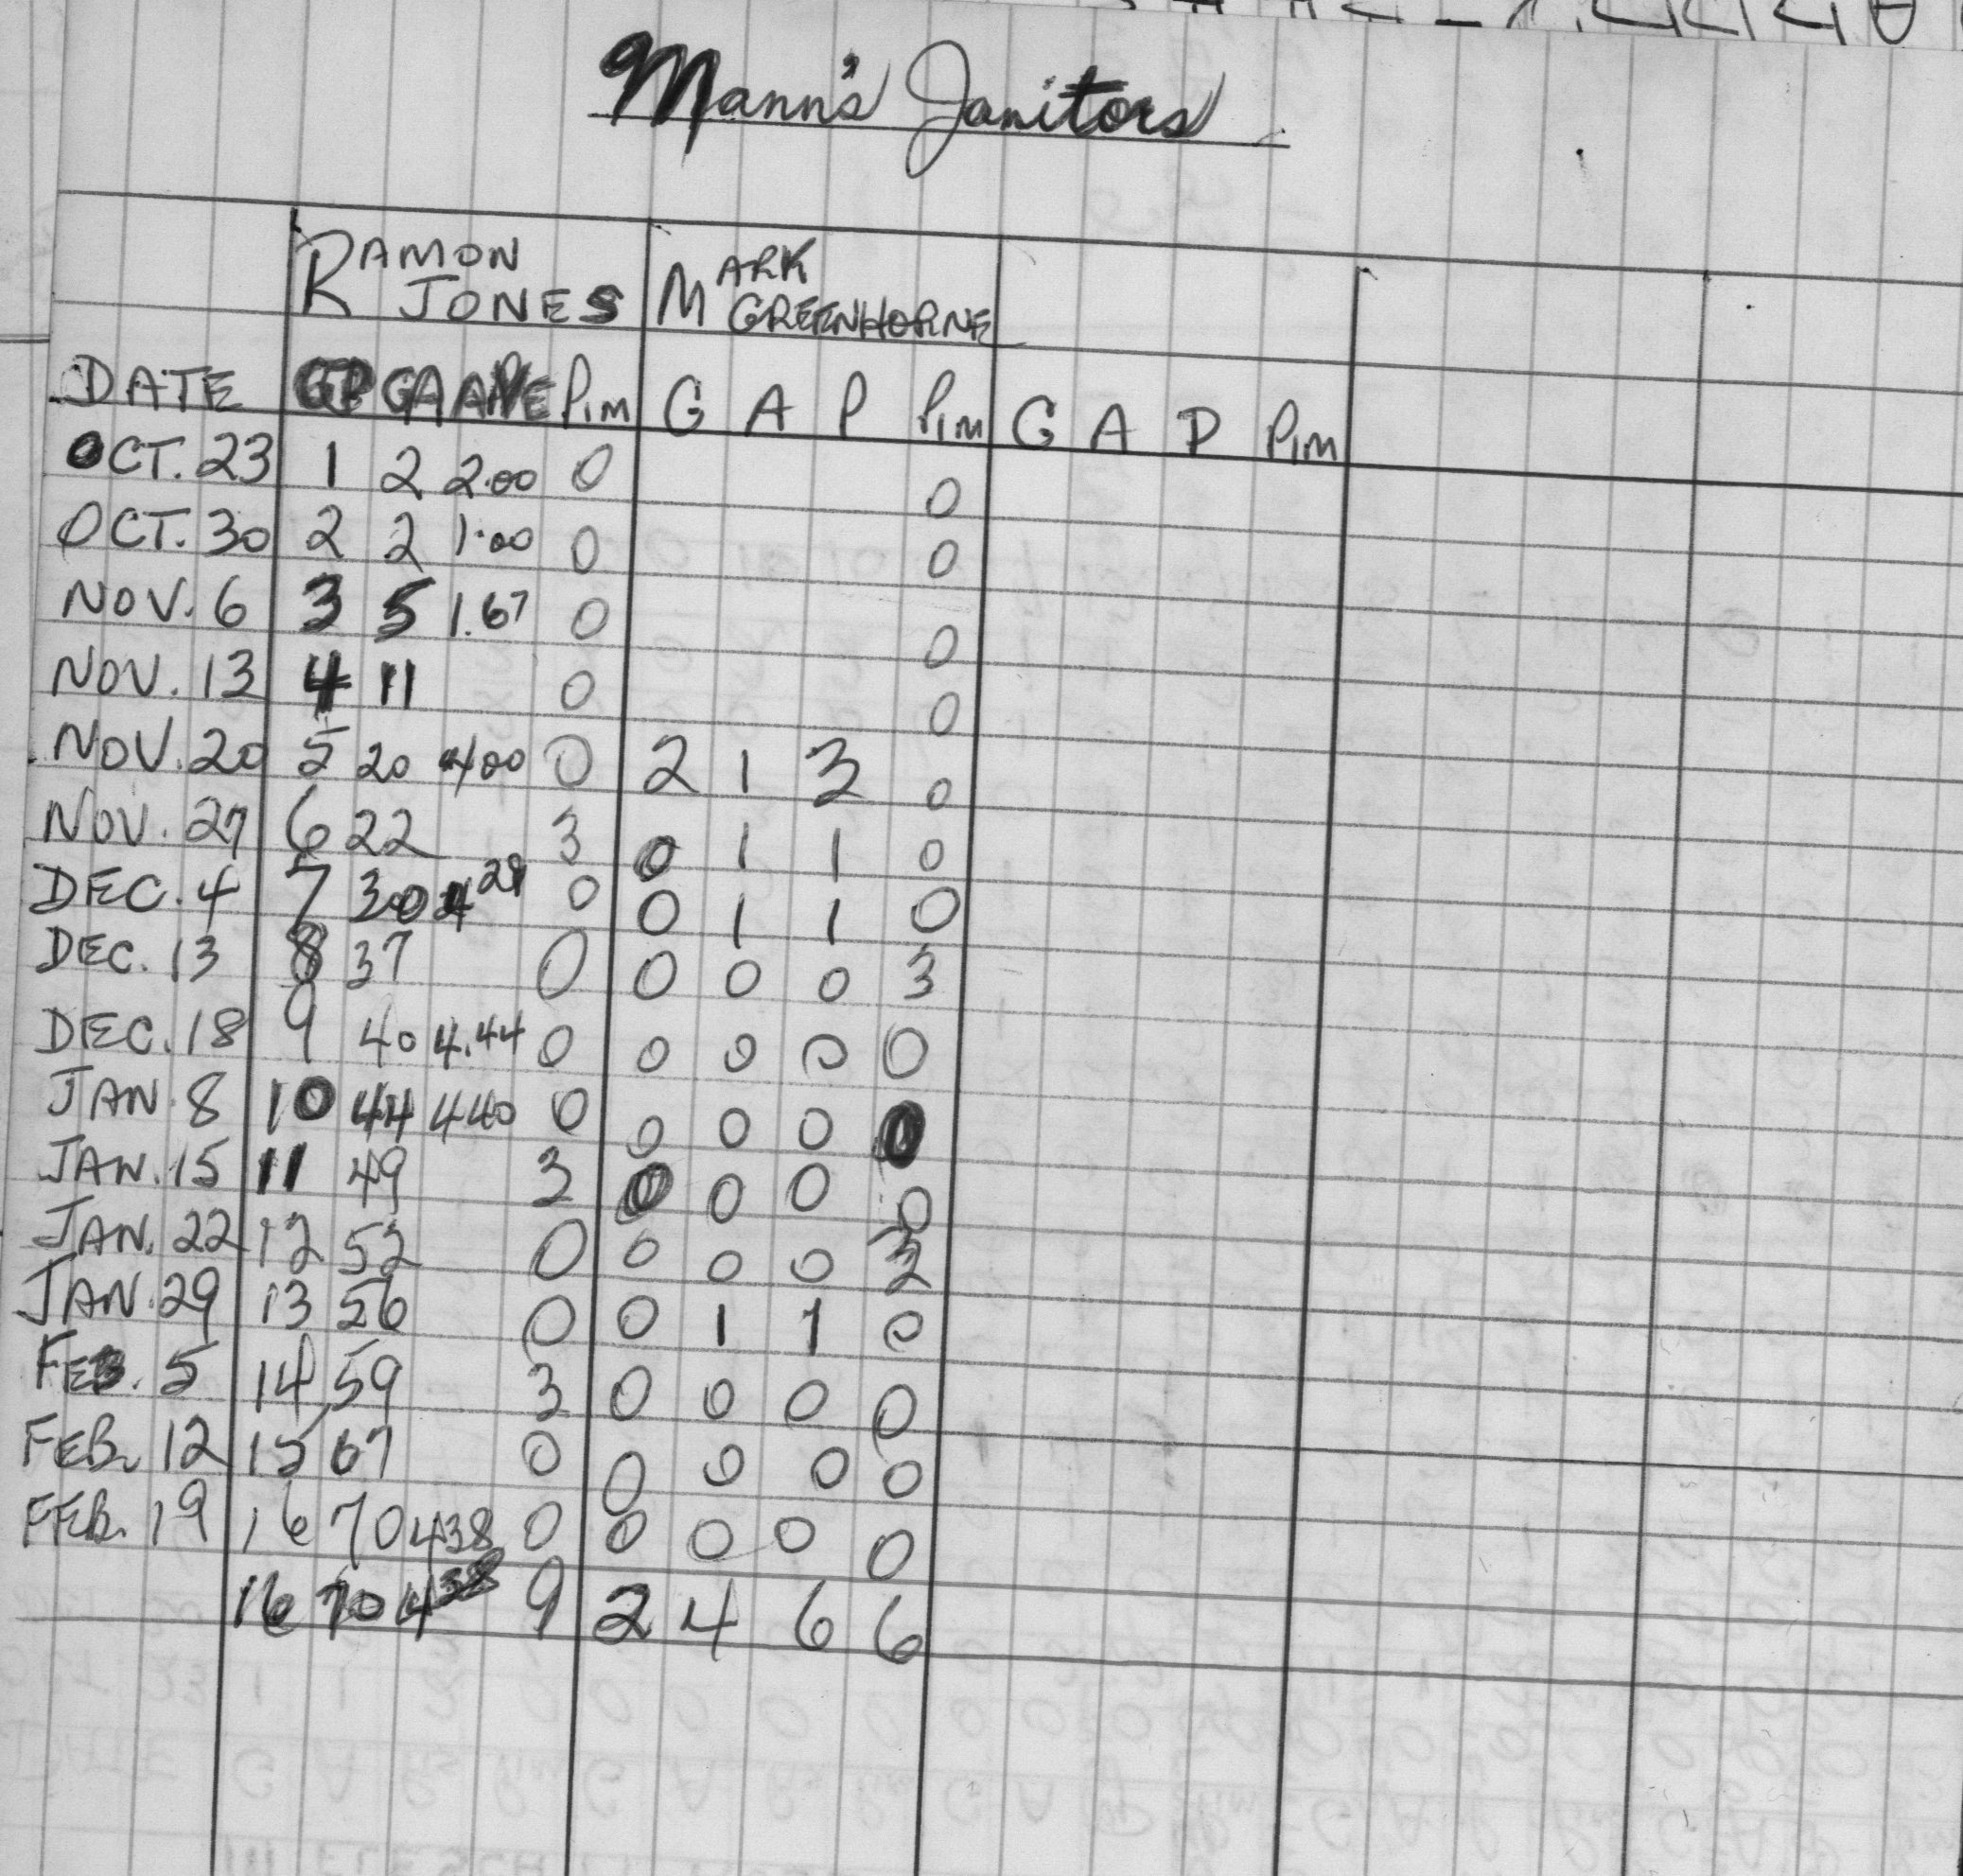 Mann's Janitors
RAMON JONES MARK GREENHORNE
DATE GP GA AVE PIM G A P PIM G A P PIM
OCT. 23 1 2 2.00 0 0
OCT. 30 2 2 1.00 0 0
NOV. 6 3 5 1.67 0 0
NOV. 13 4 11 0 0
NOV. 20 5 20 400 0 2 1 3 0
NOV. 27 6 22 3 0 1 1 0
DEC. 4 7 30 4 29 0 0 1 1 0
DEC. 13 8 37 0 0 0 0 3
DEC. 18 9 40 4.44 0 0 0 0 0
JAN. 8 10 44 440 0 0 0 0 0
JAN. 15 11 49 3 0 0 0 0
JAN. 22 12 52 0 0 0 0 3
JAN. 29 13 56 0 0 1 1 0
FEB. 5 14 59 3 0 0 0 0
FEB. 12 15 67 0 0 0 0 0
FEB. 19 16 70 438 0 0 0 0 0
16 70 438 9 2 4 6 6